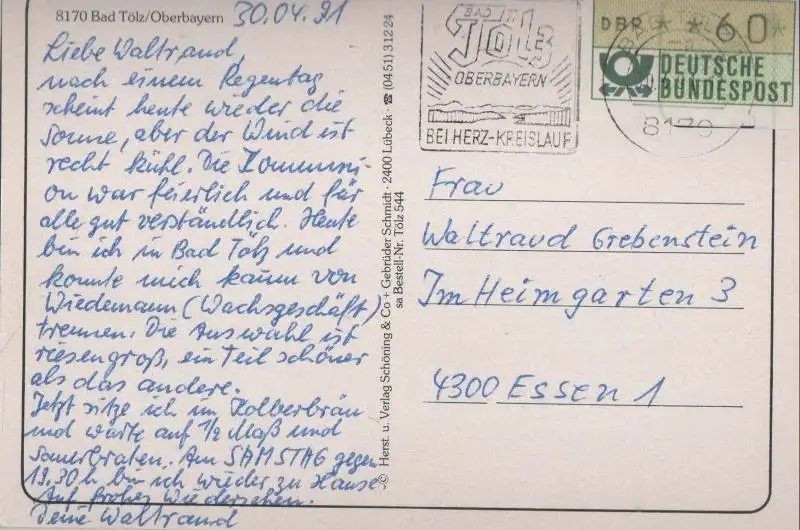 8170 Bad Tölz/Oberbayern
30.04.91
Liebe Waltraud,
nach einem Regentag
scheint heute wieder die
Sonne, aber der Wind ist
recht kühl. Die Kommuni-
on war feierlich und für
alle gut verständlich. Heute
bin ich in Bad Tölz und
konnte mich kaum von
Wiedemann (Wachsgeschäft)
trennen. Die Auswahl ist
riesengroß, ein Teil schöner
als das andere.
Jetzt sitze ich im Kolberbräu
und warte auf 1/2 Maß und
Sauerbraten. Am SAMSTAG gegen
19.30 h bin ich wieder zu Hause
Auf frohes Wiedersehen.
Deine Waltraud
© Herst. u. Verlag Schöning & Co + Gebrüder Schmidt · 2400 Lübeck · ☎ (04 51) 3 12 24
sa Bestell-Nr. Tölz 544
BAD
Tölz
OBERBAYERN
BEI HERZ-KREISLAUF
DBP * * 60 *
DEUTSCHE
BUNDESPOST
8170
Frau
Waltraud Grebenstein
Im Heimgarten 3
4300 Essen 1